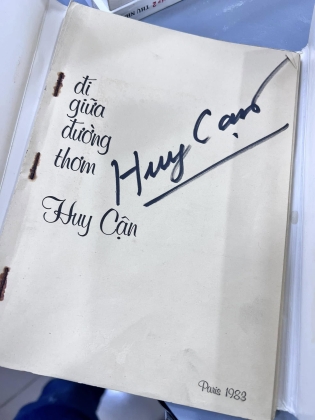 đi
giữa
đường
thơm
Huy Cận
Huy Cận
Paris 1983